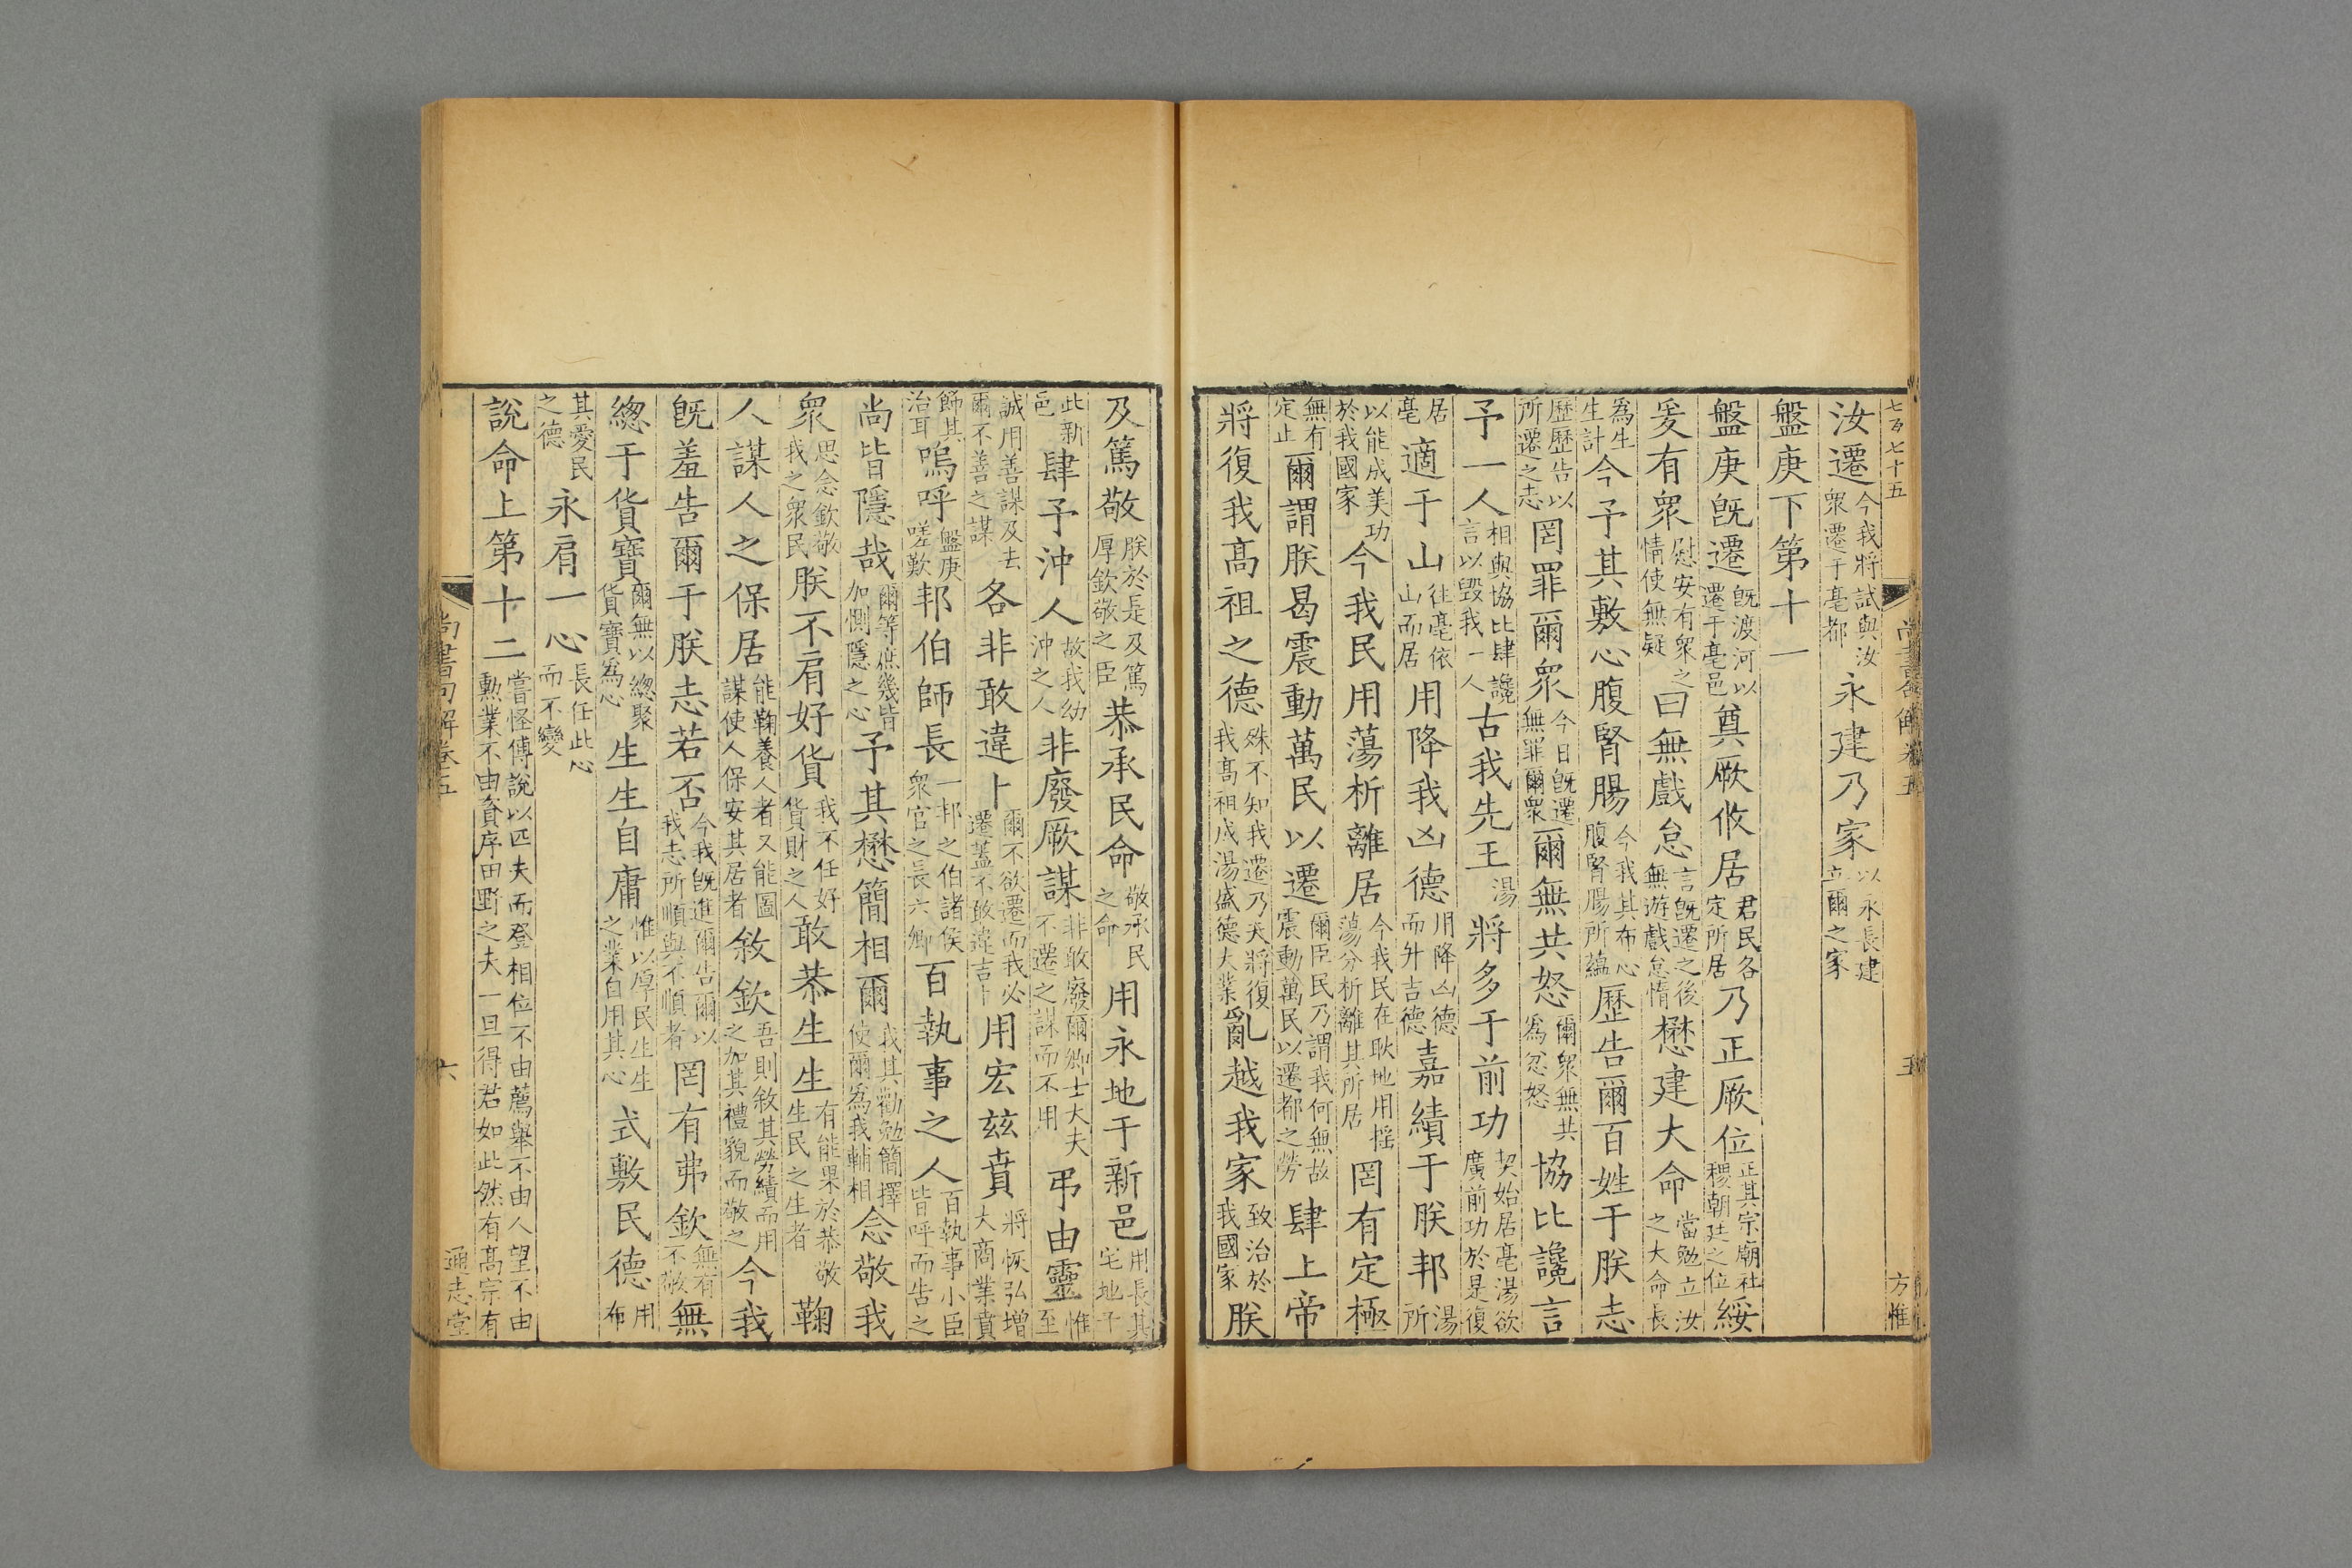 七百七十五
尚書句解卷五
五
方惟
汝遷今我將試與汝衆遷于亳都永建乃家以永長建立爾之家
盤庚下第十一
盤庚旣遷旣渡河以遷于亳邑奠厥攸居君民各定所居乃正厥位正其宗廟社稷朝廷之位綏
爰有衆慰安有衆之情使無疑曰無戲怠言旣遷之後無遊戲怠惰懋建大命當勉立汝之大命長
爲生生計今予其敷心腹腎腸今我其布心腹腎腸所蘊歷告爾百姓于朕志
歷歷告以所遷之志罔罪爾衆今日旣遷無罪爾衆爾無共怒爾衆無共爲忿怒協比讒言
予一人相與協比肆讒言以毀我一人古我先王湯將多于前功契始居亳湯欲廣前功於是復
居亳適于山往亳依山而居用降我凶德用降凶德而升吉德嘉績于朕邦湯所
以能成美功於我國家今我民用蕩析離居今我民在耿地用搖蕩分析離其所居罔有定極
無有定止爾謂朕曷震動萬民以遷爾臣民乃謂我何無故震動萬民以遷都之勞肆上帝
將復我高祖之德殊不知我遷乃天將復我高祖成湯盛德大業亂越我家致治於我國家朕
及篤敬朕於是及篤厚欽敬之臣恭承民命敬承民之命用永地于新邑用長其宅地于
此新邑肆予沖人故我幼沖之人非廢厥謀非敢廢爾卿士大夫不遷之謀而不用弔由靈惟至
誠用善謀及去爾不善之謀各非敢違卜爾不欲遷而我必遷蓋不敢違吉卜用宏茲賁將恢弘增大商業賁
飾其治耳嗚呼盤庚嗟歎邦伯師長一邦之伯諸侯衆官之長六卿百執事之人百執事小臣皆呼而告之
尚皆隱哉爾等庶幾皆加惻隱之心予其懋簡相爾我其勸勉簡擇使爾爲我輔相念敬我
衆思念欽敬我之衆民朕不肩好貨我不任好貨財之人敢恭生生有能果於恭敬生民之生者鞠
人謀人之保居能鞠養人者又能圖謀使人保安其居者敘欽吾則敘其勞績而用之加其禮貌而敬之今我
旣羞告爾于朕志若否今我旣進爾告爾以我志所順與不順者罔有弗欽無有不敬無
緫于貨寶爾無以緫聚貨寶爲心生生自庸惟以厚民生生之業自用其心式敷民德用布
其愛民之德永肩一心長任此心而不變
說命上第十二嘗怪傅說以匹夫而登相位不由薦舉不由人望不由勲業不由資序田野之夫一旦得君如此然有高宗有
尚書句解卷五
六
通志堂